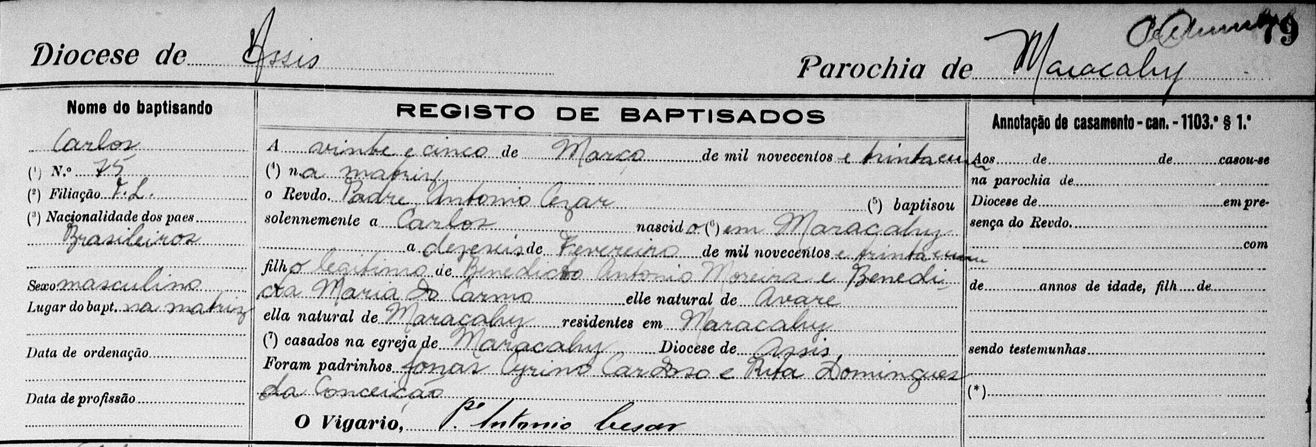 79
Diocese de Assis Parochia de Maracahy
Nome do baptisando
Carlos
(¹) N.º 75
(²) Filiação F. L.
(³) Nacionalidade dos paes
Brasileiros
Sexo masculino
Lugar do bapt. na matriz
Data de ordenação
Data de profissão
REGISTO DE BAPTISADOS
A vinte e cinco de Março de mil novecentos e trinta e um
(⁴) na matriz
o Revdo. Padre Antonio Cezar (⁵) baptisou
solennemente a Carlos nascido (⁶) em Maracahy
a dezeseis de Fevereiro de mil novecentos e trinta e um
filho legitimo de Benedicto Antonio Moreira e Benedi-
cta Maria do Carmo elle natural de Avare
ella natural de Maracahy residentes em Maracahy
(⁷) casados na egreja de Maracahy Diocese de Assis,
Foram padrinhos Jonas Cyrino Cardoso e Rita Domingues
da Conceição
O Vigario, Pe Antonio Cesar
Annotação de casamento - can. - 1103.º § 1.º
Aos de de casou-se
na parochia de
Diocese de em pre-
sença do Revdo.
com
de annos de idade, filh de
sendo testemunhas
(*)